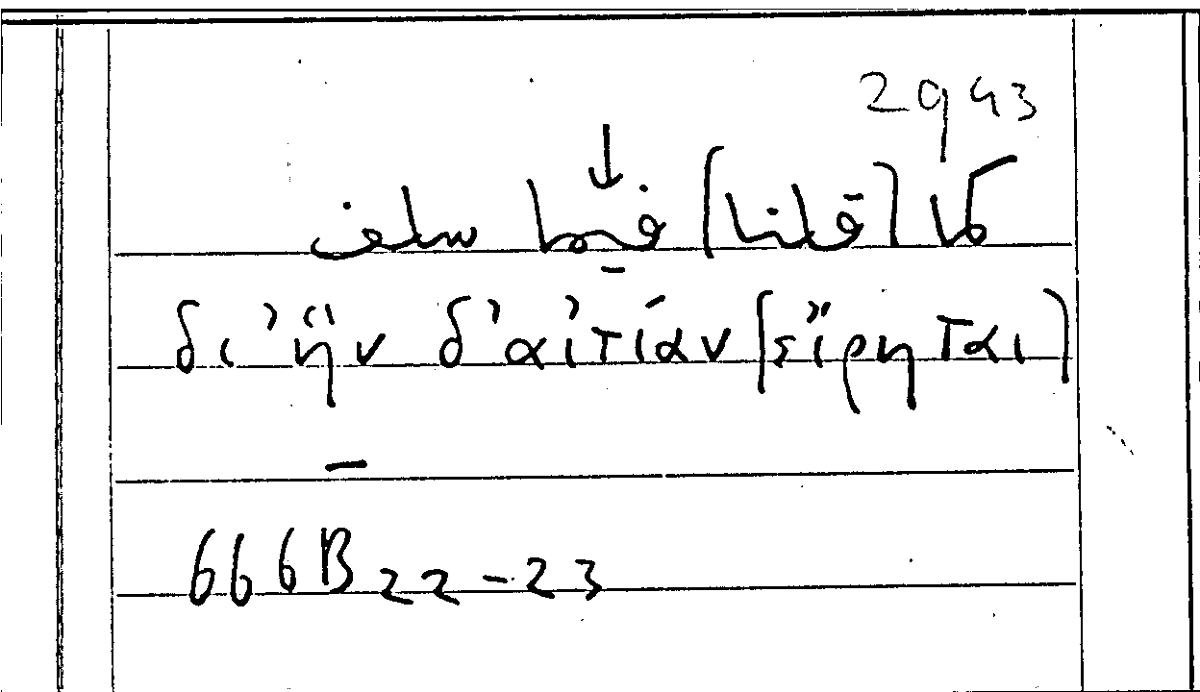 2993
كما [قلنا] فيما سلف
δι' ἣν δ' αἰτίαν [εἴρηται]
666B 22-23